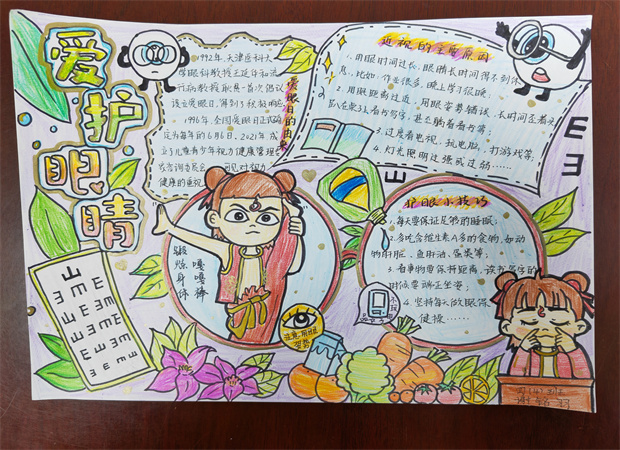 爱护眼睛
1992年,天津医科大
学眼科教授王延华和流
行病教授耿贯一首次倡议
设立爱眼日,得到了积极响应
1996年,全国爱眼日正式确
定为每年的6月6日,2021年成
立了儿童青少年视力健康管理专
家咨询委员会
见对视力
健康的重视
爱眼日的由来
近视的主要原因
1.用眼时间过长,眼睛长时间得不到休
息,比如:作业很多,晚上学习很晚。
2.用眼距离过近,用眼姿势错误,长时间歪着头
趴在桌子上看书写字,甚至躺着看书等;
3.过度看电视、玩电脑、打游戏等;
4.灯光照明过强或过弱……
护眼小技巧
1.每天要保证足够的睡眠;
2.多吃含维生素A多的食物,如动
物肝脏,鱼肝油、蛋类等;
3.看事物要保持距离,读书写字的
时候要端正坐姿;
4.坚持每天做眼保
健操……
锻炼身体
嘎嘎棒
注意用眼
姿势